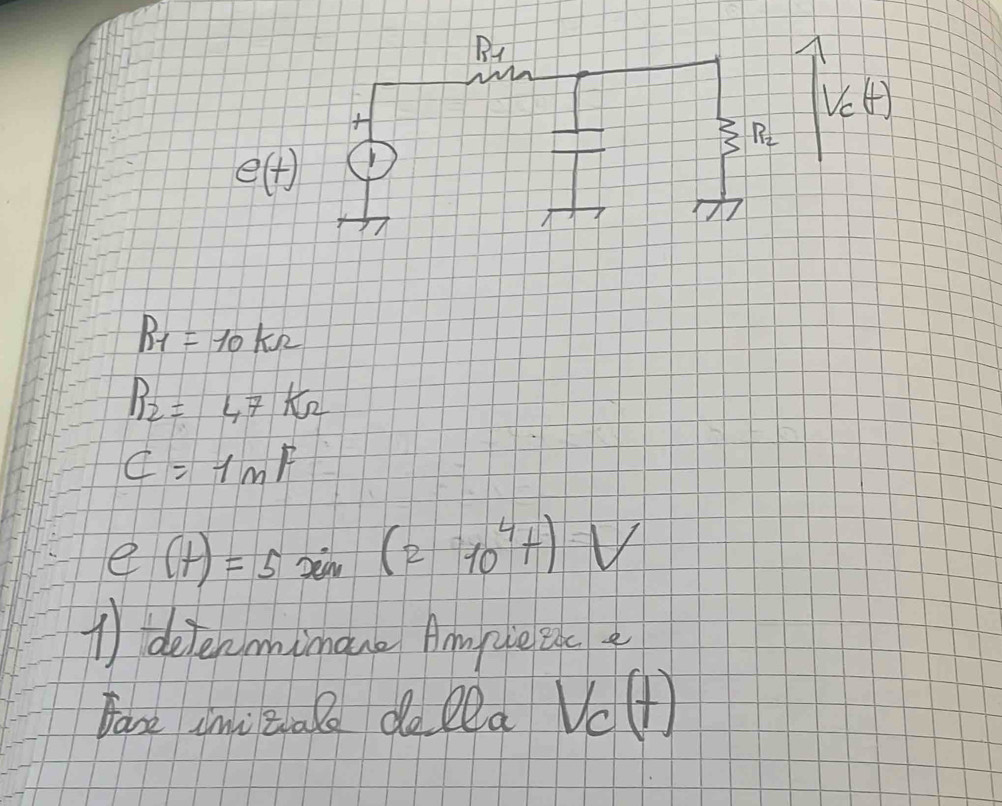 R1
+
e(t)
R2
Vc(t)
R1 = 10 KΩ
R2 = 47 KΩ
C = 1 nF
e (t) = 5 sin (2 10⁴t) V
1) determinare Ampiezza e
Fase iniziale della Vc(t)